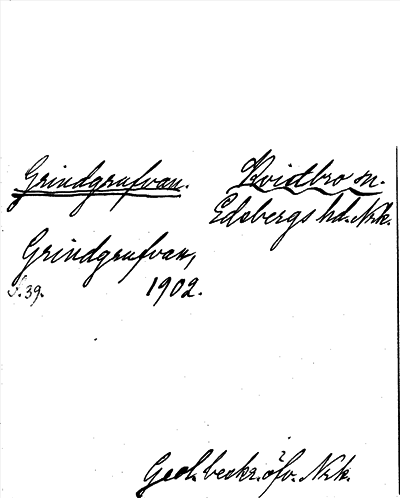 Grindgrufvan.
Kvistbro sn.
Edsbergs hd. Nrk.
Grindgrufvan,
S. 39. 1902.
Geol. beskr. öfv. Nrk.